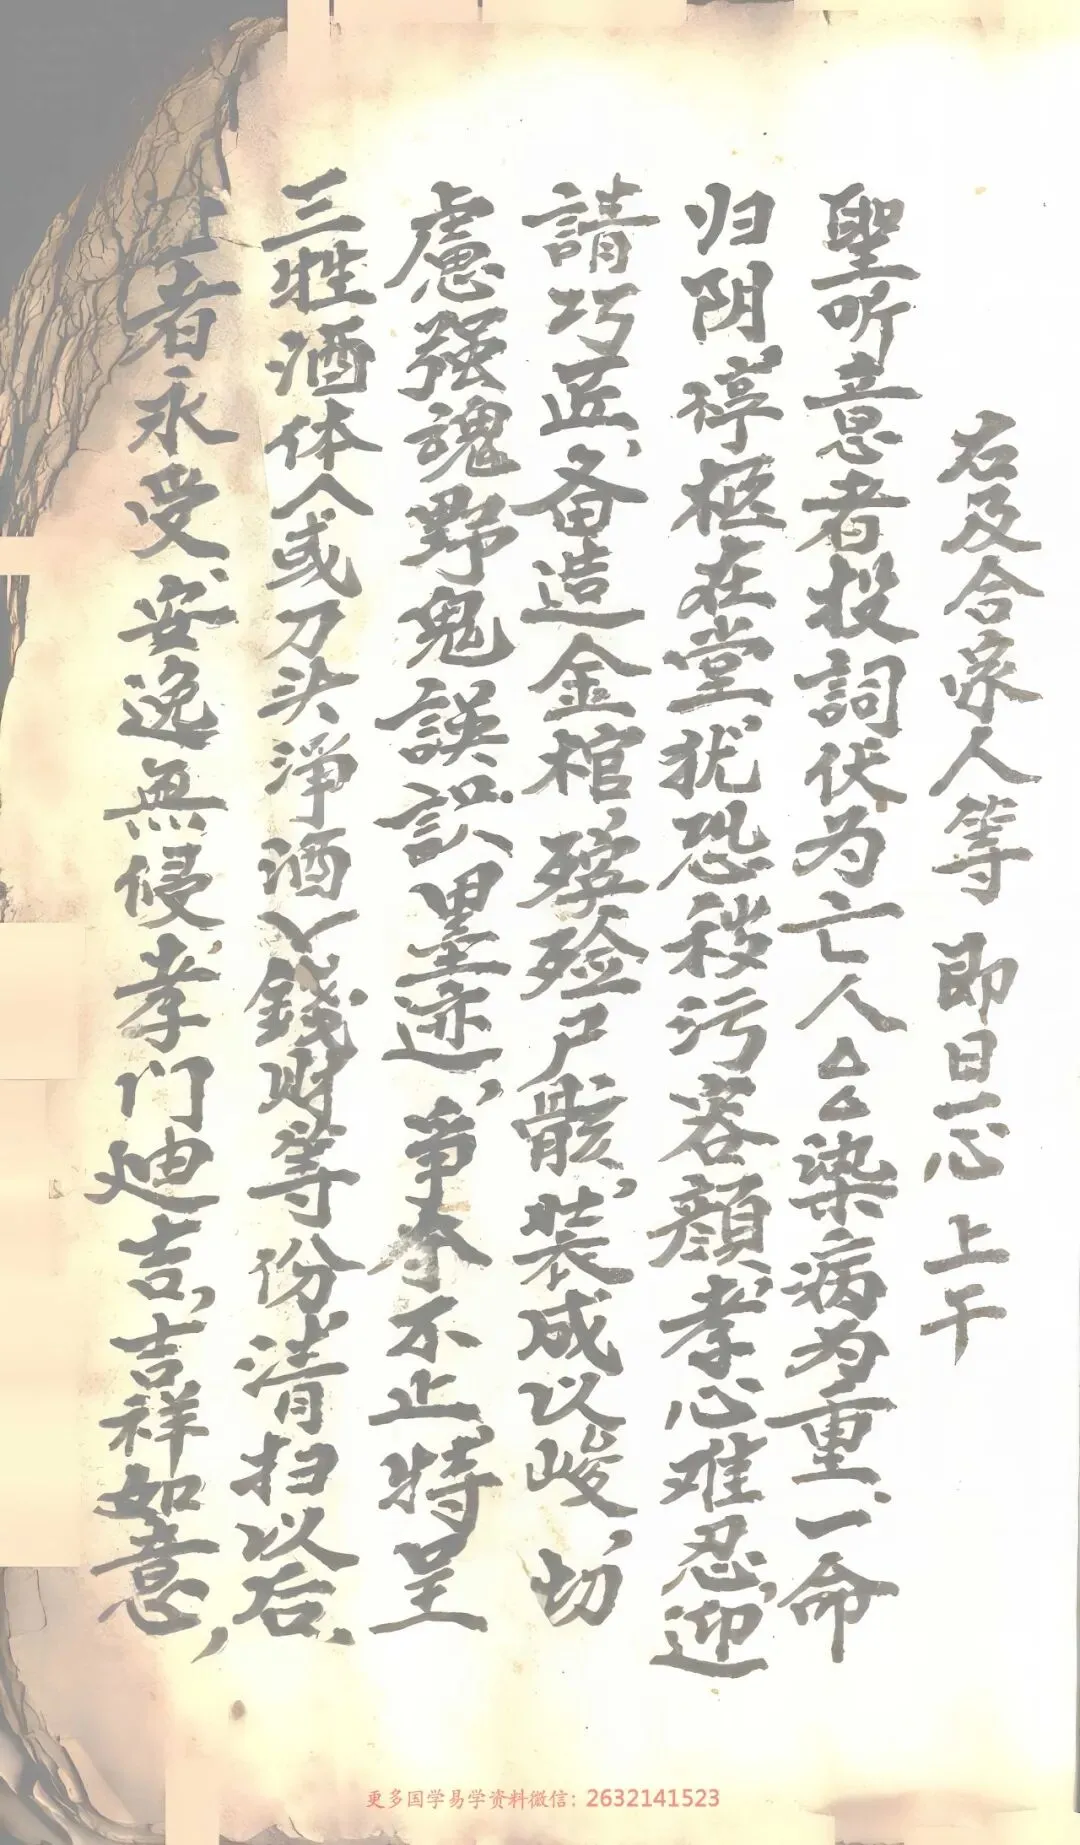 右及合家人等 即日一心 上干
聖听意者投詞伏为亡人△△染病为重、一命
归阴、停柩在堂、犹恐秽污容颜、孝心难忍、迎
請巧匠、备造金棺，殡殓尸骸、装成以峻，切
慮强魂野鬼誤識墨迹，争夺不止、特呈
三牲酒体人或刀头淨酒 錢财等份、清扫以后、
者永受、安逸無侵、孝门迪吉，吉祥如意，
更多国学易学资料微信：2632141523